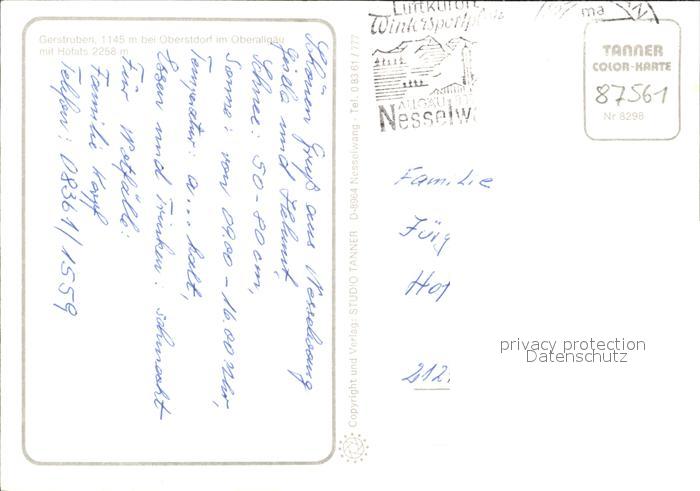 Gerstruben, 1145 m bei Oberstdorf im Oberallgäu
mit Höfats 2258 m
Schönen Gruß aus Nesselwang
Gisela und Helmut,
Schnee: 50-80 cm,
Sonne: von 09.00-16.00 Uhr,
Temperatur: a... kalt,
Essen und Trinken: schmeckt
Für Notfälle:
Familie Kopf
Telefon: 08361/1559
Copyright und Verlag: STUDIO TANNER D-8964 Nesselwang - Tel. 0 83 61 / 777
Luftkurort
Wintersportplatz
ALLGÄU
Nesselw
ma
TANNER
COLOR-KARTE
87561
Nr 8298
Familie
Jürg
Hof
212.
privacy protection
Datenschutz